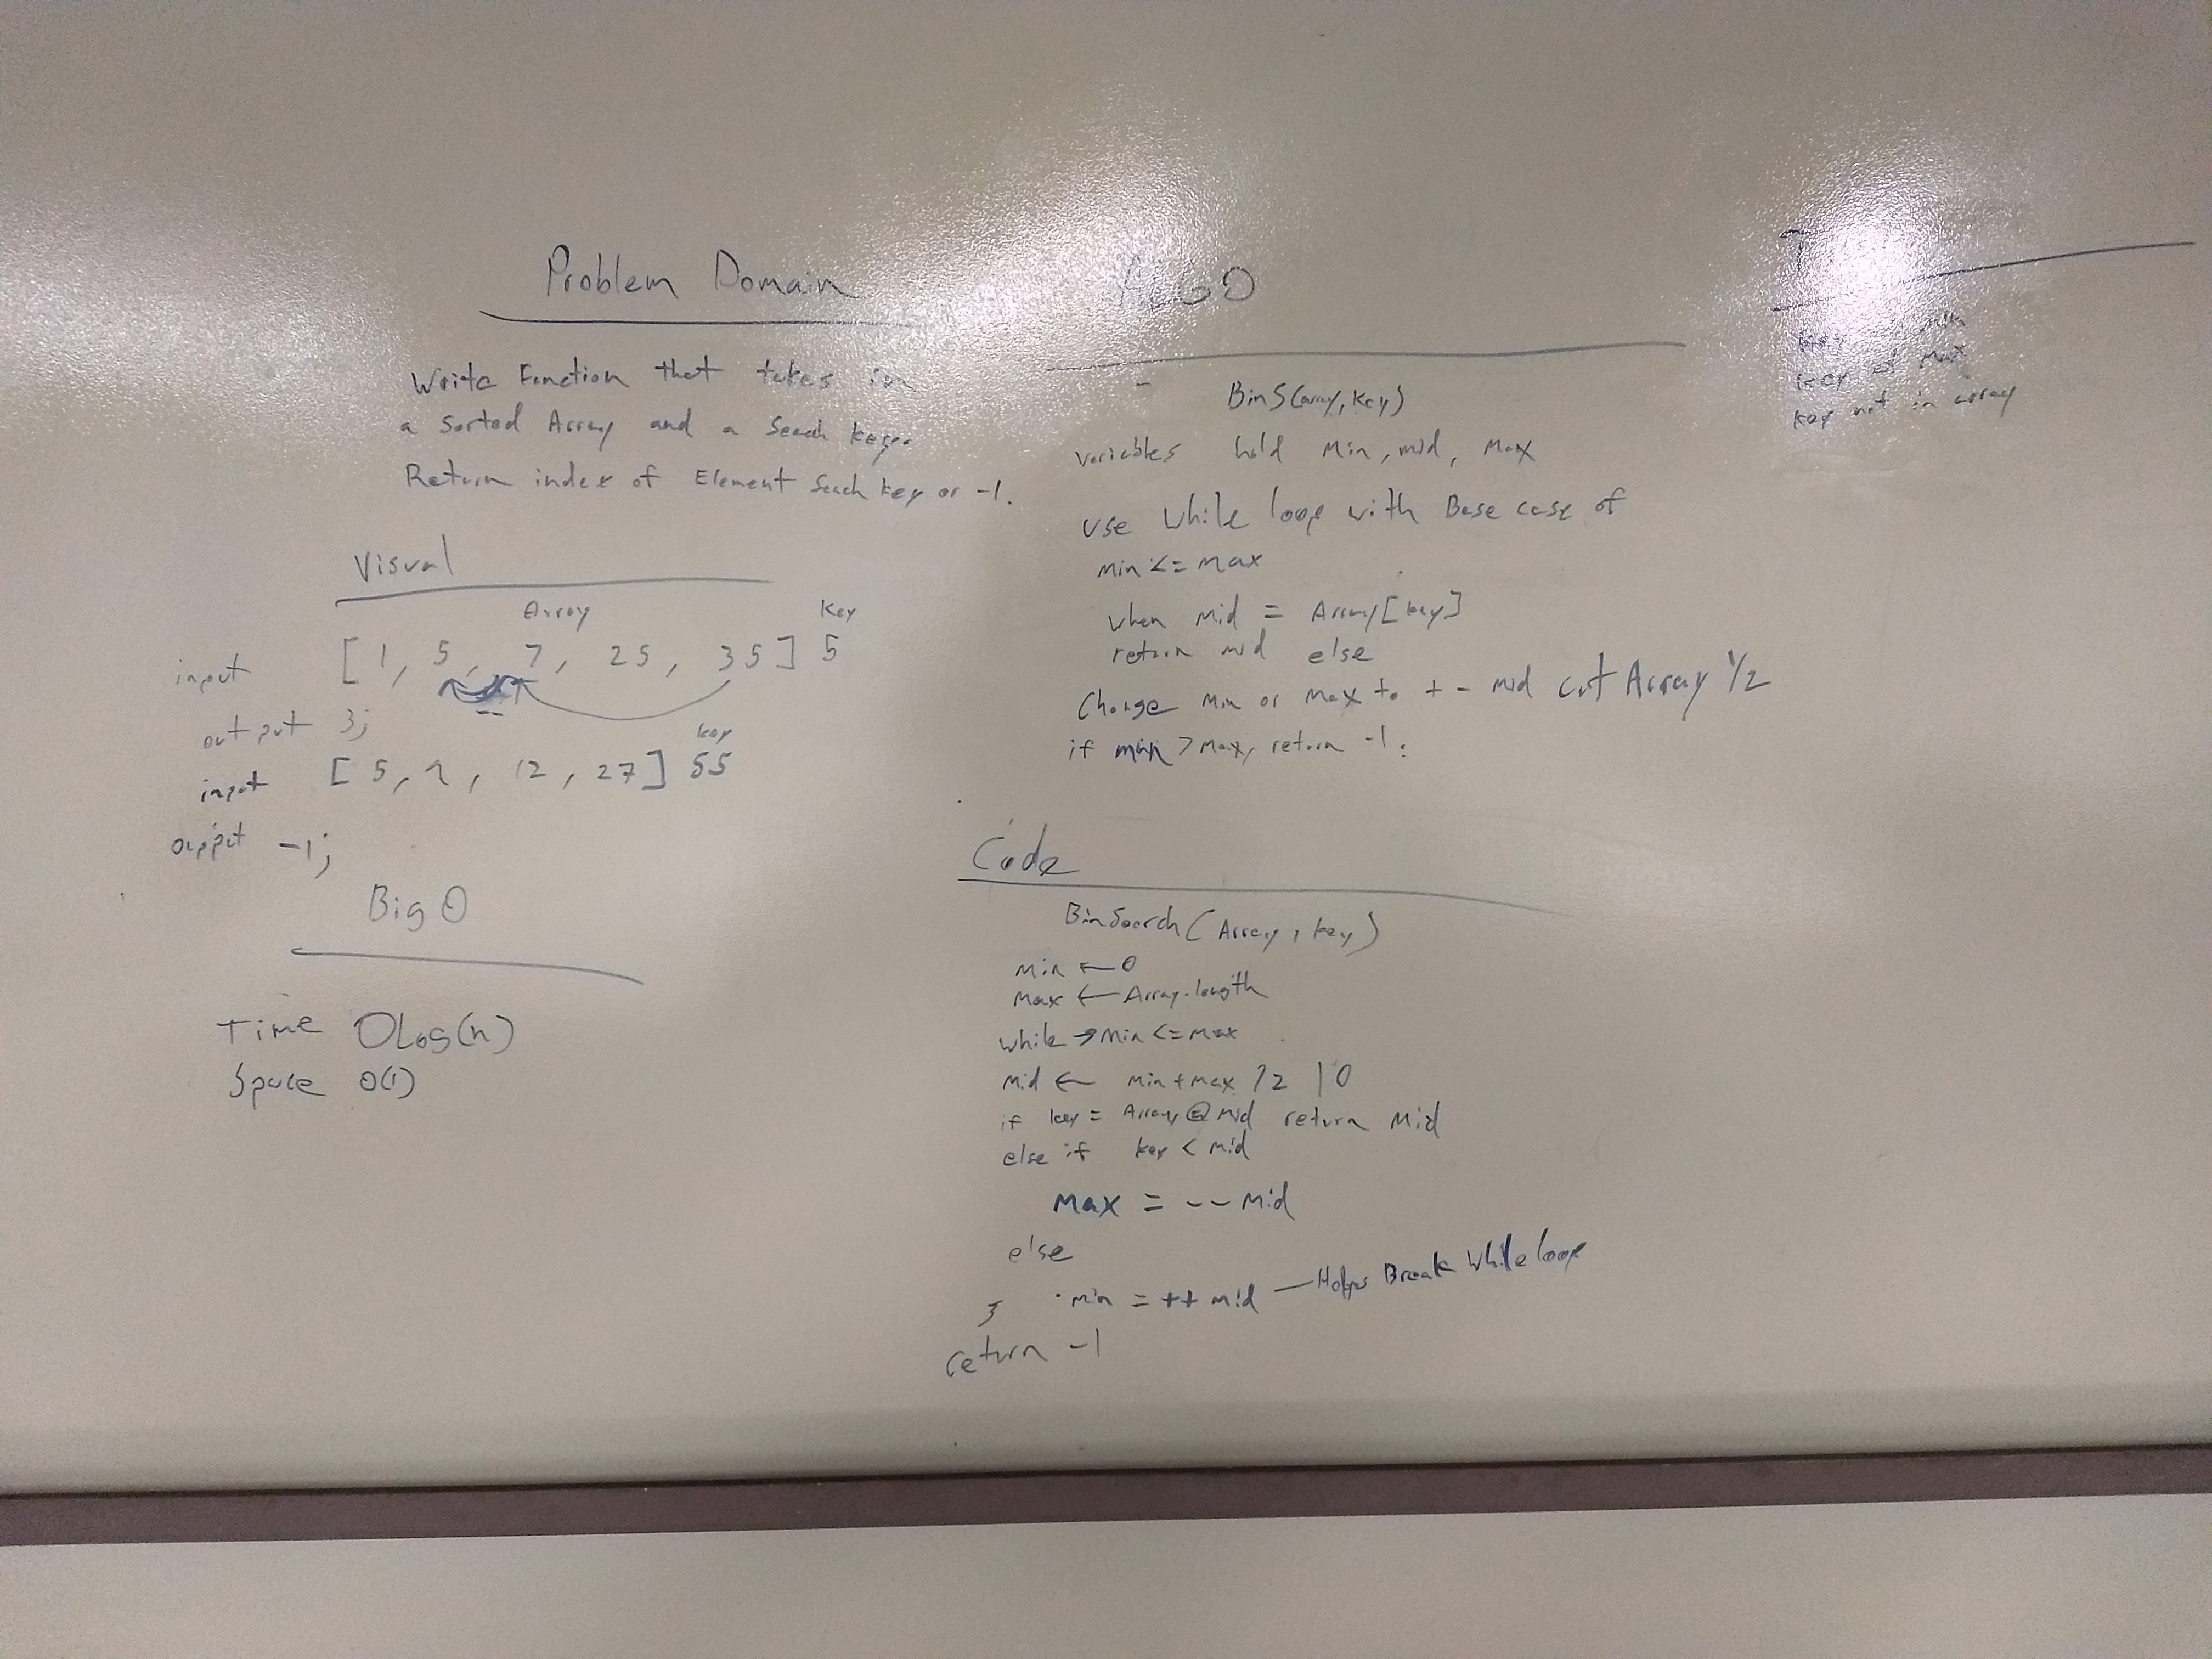 Problem Domain
Write Function that takes in
a Sorted Array and a Seach key.
Return index of Element Seach key or -1.
Visual
Array Key
input [1, 5, 7, 25, 35] 5
output 3;
key
input [5, , 12, 27] 55
output -1;
Big O
Time OLog(n)
Space O(1)
ALGO
BinS(array, key)
variables hold Min, mid, Max
use while loop with Base case of
min <= max
when mid = Array[key]
return mid else
Change min or max to + - mid cut Array 1/2
if min > Max, return -1.
Code
BinSearch(Array, key)
min ← 0
Max ← Array.length
while → min <= max
mid ← min + max / 2 | 0
if key = Array @ mid return Mid
else if key < mid
Max = -- Mid
else
min = ++ mid — Helps Break While loop
}
return -1
key at Max
key not in array